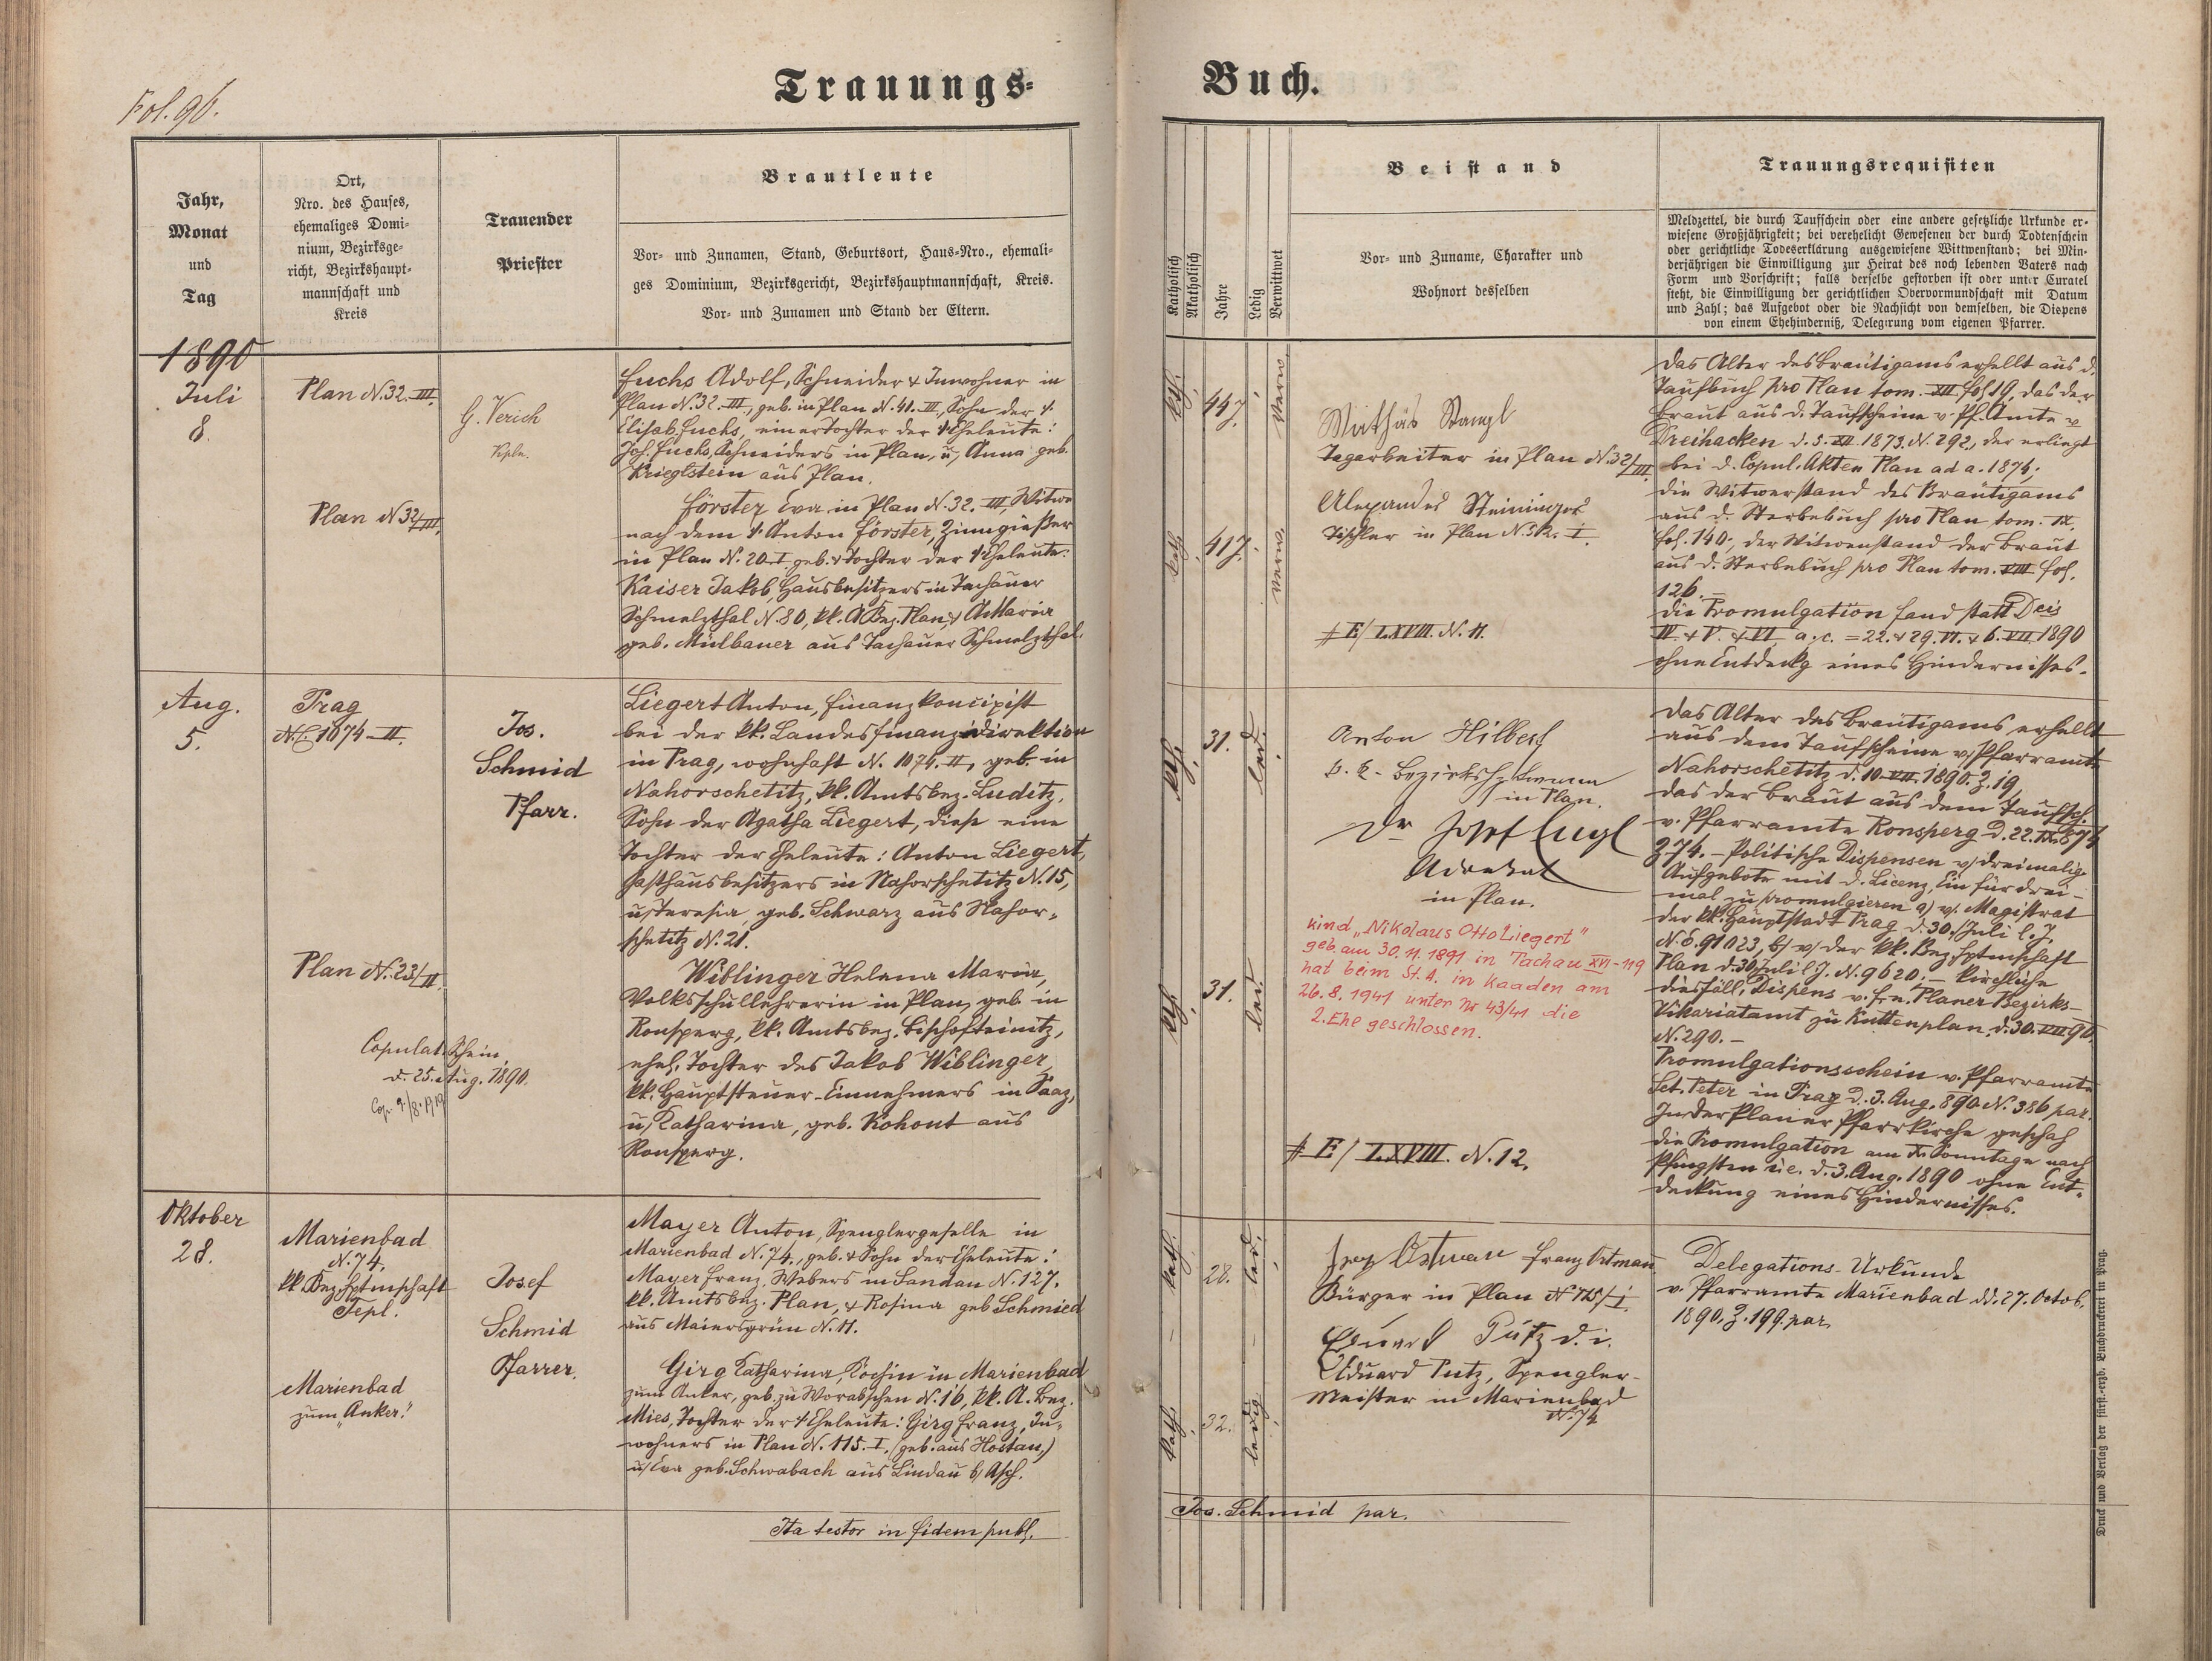 Fol. 96.
Trauungs-
Buch.
Jahr,
Monat
und
Tag
Ort,
Nro. des Hauses,
ehemaliges Domi-
nium, Bezirksge-
richt, Bezirkshaupt-
mannschaft und
Kreis
Trauender
Priester
Brautleute
Vor- und Zunamen, Stand, Geburtsort, Haus-Nro., ehemali-
ges Dominium, Bezirksgericht, Bezirkshauptmannschaft, Kreis.
Vor- und Zunamen und Stand der Eltern.
Katholisch
Akatholisch
Jahre
Ledig
Verwittwet
Beistand
Vor- und Zuname, Charakter und
Wohnort desselben
Trauungsrequisiten
Meldzettel, die durch Taufschein oder eine andere gesetzliche Urkunde er-
wiesene Großjährigkeit; bei verehelicht Gewesenen der durch Todtenschein
oder gerichtliche Todeserklärung ausgewiesene Wittwenstand; bei Min-
derjährigen die Einwilligung zur Heirat des noch lebenden Vaters nach
Form und Vorschrift; falls derselbe gestorben ist oder unter Curatel
steht, die Einwilligung der gerichtlichen Obervormundschaft mit Datum
und Zahl; das Aufgebot oder die Nachsicht von demselben, die Dispens
von einem Ehehinderniß, Delegirung vom eigenen Pfarrer.
1890
Juli
8.
Plan N. 32. III.
Plan N 32/III.
G. Verich
Kpln.
Fuchs Adolf, Schneider & Inwohner in
Plan N. 32. III, geb. in Plan N. 41. III, Sohn der †
Elisab. Fuchs, einer Tochter der † Eheleute:
Joh. Fuchs, Schneiders in Plan, u, Anna geb.
Krieglstein aus Plan.
Förster Eva in Plan N. 32. III, Witwe
nach dem † Anton Förster, Zinngießer
in Plan N. 20. I geb. & Tochter der † Eheleute:
Kaiser Jakob, Hausbesitzers in Tachauer
Schmelzthal N. 80, kk. A Bez. Plan, & A Maria
geb. Mülbauer aus Tachauer Schmelzthal.
kth.
44 J.
verw
kath
41 J.
verw.
Mathäs Stangl
Tagarbeiter in Plan N. 32/III.
Alexander Steininger
Tischler in Plan N. 32. I.
# E/LXVIII. N. 11.
das Alter des Bräutigams erhellt aus d.
Taufbuch pro Plan tom. XII fol 19, das der
Braut aus d. Taufscheine v. Pf. Amte v
Dreihacken d. 3. XII. 1873. N. 292., der erliegt
bei d. Copul. Akten Plan ad a. 1874;
die Witwerstand des Bräutigams
aus d. Sterbebuch pro Plan tom. IX.
fol. 140., der Witwenstand der Braut
aus d. Sterbebuch pro Plan tom. VIII fol.
126. –
die Promulgation fand statt Dcis
IV. & V. & VI a. c. = 22. & 29. VI. & 6. VII. 1890
ohne Entdeckg eines Hindernisses.
Aug.
5.
Prag
NC. 1074-II.
Plan N. 23/II.
Copulat. Schein
d. 25. Aug. 1890.
Cop. 9./8. 1919
Jos.
Schmid
Pfarr.
Liegert Anton, Finanzkoncipist
bei der kk. Landesfinanzdirektion
in Prag, wohnhaft N. 1074. II, geb. in
Nahorschetitz, kk. Amtsbez. Luditz,
Sohn der Agatha Liegert, diese eine
Tochter der Eheleute: Anton Liegert,
Gasthausbesitzers in Nahorschetitz N. 15,
u, Teresia, geb. Schwarz aus Nahor-
schetitz N. 21.
Wiblinger Helena Maria,
Volksschullehrerin in Plan, geb. in
Ronsperg, kk. Amtsbez. Bischofteinitz,
ehel. Tochter des Jakob Wiblinger,
kk. Hauptsteuer-Einnehmers in Saaz,
u, Katharina, geb. Kohout aus
Ronsperg.
kth.
31.
led.
kth.
31.
led.
Anton Hilbert
k. k. Bezirkshptmann
in Plan.
Dr Josef Engl
Advokat
in Plan.
Kind „Nikolaus Otto Liegert"
geb. am 30. 11. 1891 in Tachau XVI-119
hat beim St. A. in Kaaden am
26. 8. 1941 unter Nr 43/41 die
2. Ehe geschlossen.
# E/LXVIII. N. 12.
das Alter des Bräutigams erhellt
aus dem Taufscheine v. Pfarramte
Nahorschetitz d. 10. VII. 1890. Z. 19,
das der Braut aus dem Taufsch.
v. Pfarramte Ronsperg d. 22. IX. 874
Z 74. – Politische Dispensen v. dreimalig.
Aufgebote mit d. Licenz, Ein für drei-
mal zu promulgieren a) v. Magistrat
der kk. Hauptstadt Prag d. 30. Juli l. J.
N. E. 91023, b) v. der kk. Bez. Hptmschaft
Plan d. 30 Juli l J. N. 9620. – Kirchliche
diesfäll. Dispens v. f. e. Planer Bezirks-
Vikariatamt zu Kuttenplan d. 30. VII 90.
N. 290. –
Promulgationsschein v. Pfarramte
Sct. Peter in Prag d. 3. Aug. 890 N. 386 par.
In der Planer Pfarrkirche geschah
die Promulgation am X. Sonntage nach
Pfingsten i. e. d. 3. Aug. 1890 ohne Ent-
deckung eines Hindernisses.
Oktober
28.
Marienbad
N. 74.
kk Bez. Hptmschaft
Tepl.
Marienbad
zum „Anker."
Josef
Schmid
Pfarrer.
Mayer Anton, Spenglergeselle in
Marienbad N. 74., geb. & Sohn der Eheleute:
Mayer Franz, Webers in Sandau N. 127.
kk. Amtsbez. Plan, & Rosina geb Schmied
aus Maiersgrün N. 11.
Girg Katharina, Köchin in Marienbad
zum Anker, geb. zu Worabschen N. 16, kk. A. Bez.
Mies, Tochter der † Eheleute: Girg Franz, In-
wohners in Plan N. 115. I. (geb. aus Hostau,)
u, Eva geb. Schwabach aus Lindau b/ Asch.
kath.
28.
led.
kath.
32.
ledig
Franz Ortman
Bürger in Plan N 75/I.
Eduard Putz d. i.
Eduard Putz, Spengler-
meister in Marienbad
N. 74
Delegations-Urkunde
v. Pfarramte Marienbad dd. 27. Octob.
1890, Z. 199. par.
Ita testor in fidem publ.
Jos. Schmid par.
Druck und Verlag der fürst.-erzb. Buchdruckerei in Prag.